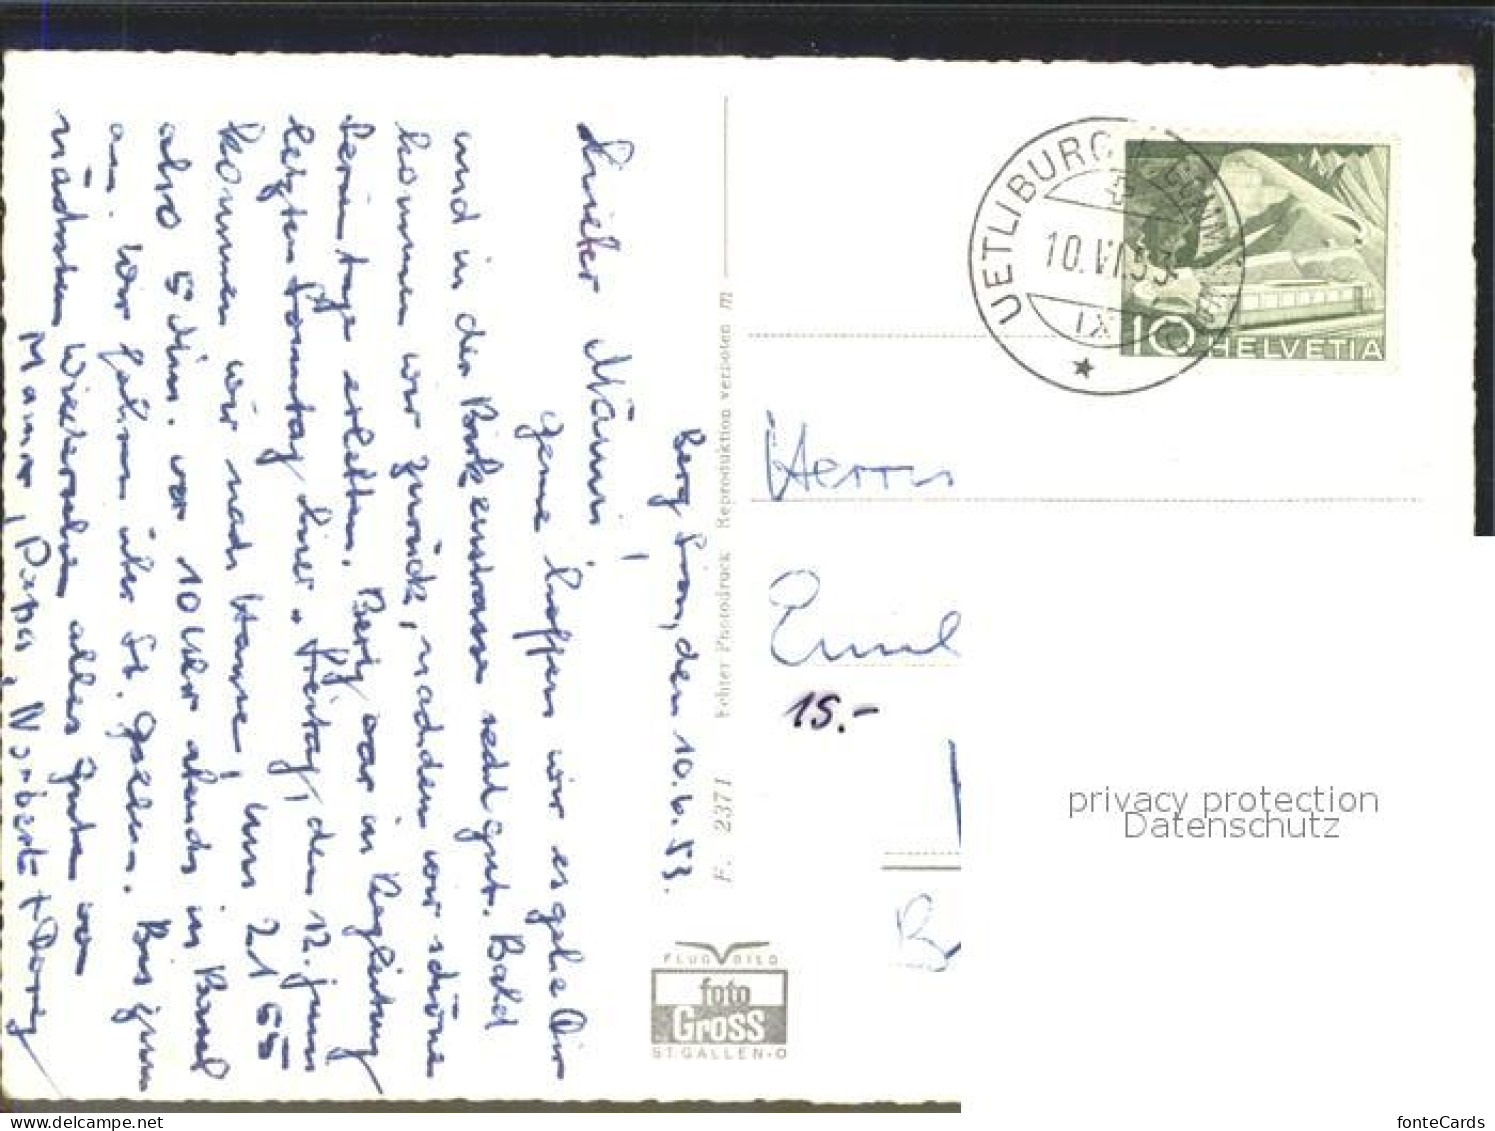 Berg Sion, den 10.6.53.
Lieber Männi!
Gerne hoffen wir es gehe Dir
und in der Birkenstrasse recht gut. Bald
kommen wir zurück, nachdem wir schöne
Ferientage erlebten. Berty war in Begleitung
letzten Sonntag hier. Freitag, den 12. Juni
kommen wir nach Hause, um 21 55
also 5 Min. vor 10 Uhr abends in Basel
an. Wir fahren über St. Gallen. Bis zum
nächsten Wiedersehen alles Gute von
Mama, Papa, Norbert + Doris
F. 2371 Fehter Photodruck Reproduktion verboten m
FLUG BILD
foto
Gross
ST.GALLEN-O
UETLIBURG
10.VI.53
IX
10 HELVETIA
Herrn
Emil
15.-
privacy protection
Datenschutz
fonteCards